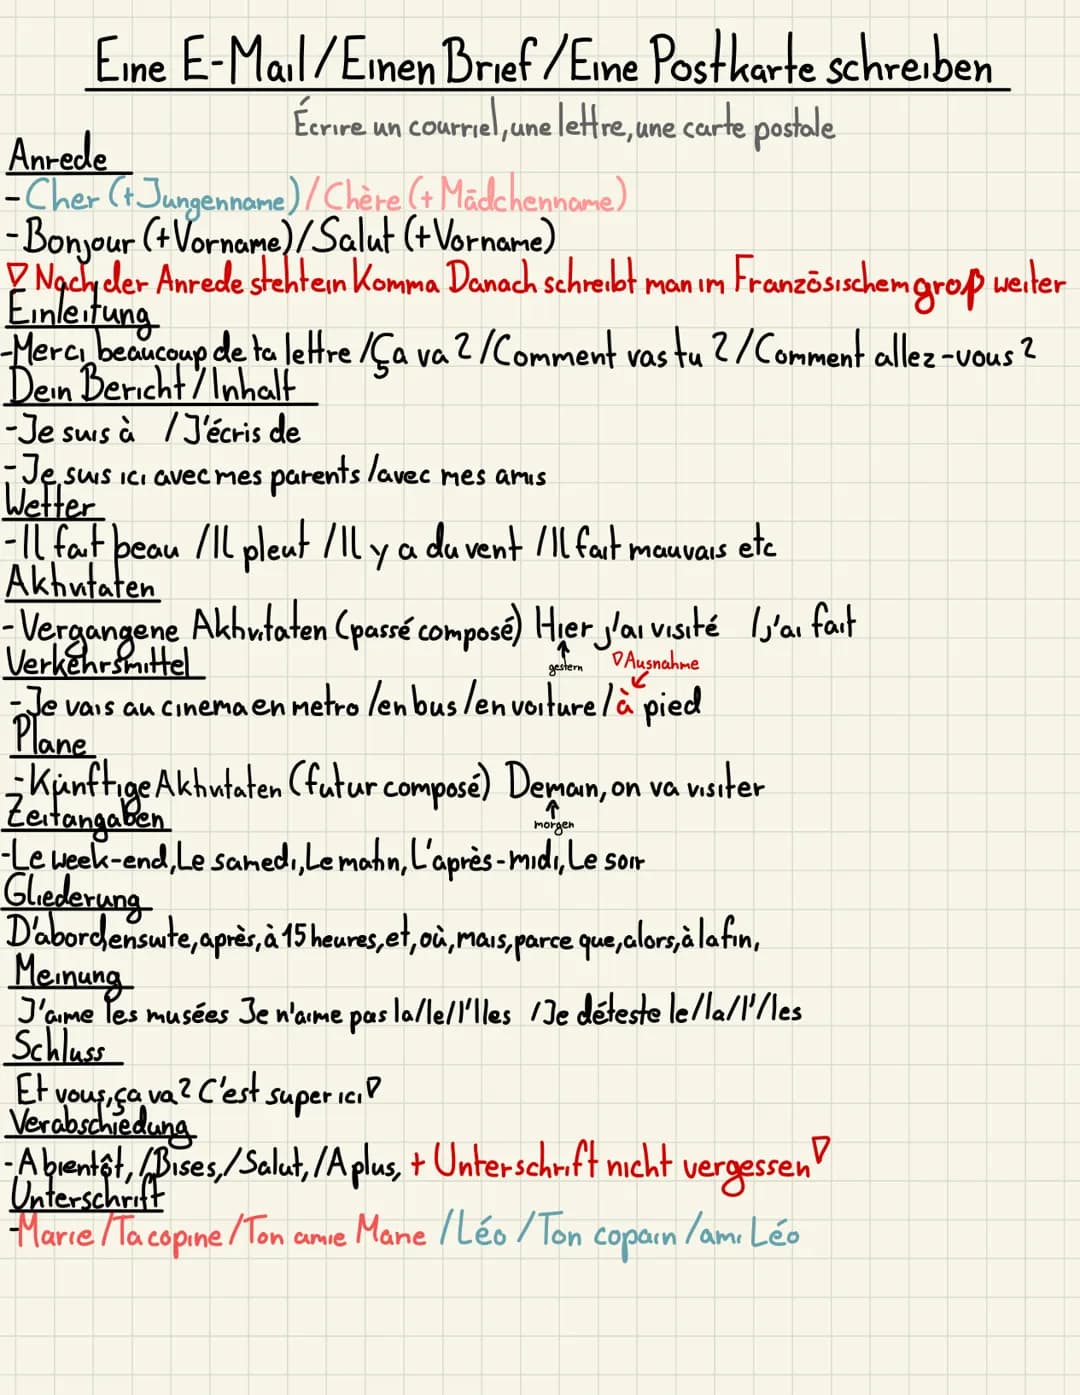 Eine E-Mail/Einen Brief/Eine Postkarte schreiben
Écrire un courriel, une lettre, une carte postale
Anrede
-Cher (+Jungenname)/Chère (+Mädchenname)
-Bonjour (+Vorname)/Salut (+Vorname)
Nach der Anrede steht ein Komma Danach schreibt man im Französischem groß weiter
Einleitung
-Merci beaucoup de ta lettre /Ça va?/Comment vas tu?/Comment allez-vous?
Dein Bericht/Inhalt
-Je suis à /J'écris de
-Je suis ici avec mes parents /avec mes amis
Wetter
-Il fait beau /Il pleut /Il y a du vent /Il fait mauvais etc
Aktivitäten
-Vergangene Aktivitäten (passé composé) Hier j'ai visité /j'ai fait
Verkehrsmittel
gestern
Ausnahme
-Je vais au cinema en metro /en bus /en voiture /à pied
Pläne
-Künftige Aktivitäten (futur composé) Demain, on va visiter
Zeitangaben
morgen
-Le week-end, Le samedi, Le matin, L'après-midi, Le soir
Gliederung
D'abord, ensuite, après, à 15 heures, et, où, mais, parce que, alors, à la fin,
Meinung
J'aime les musées Je n'aime pas la/le/l'/les /Je déteste le/la/l'/les
Schluss
Et vous, ça va? C'est super ici!
Verabschiedung
-A bientôt, /Bises, /Salut, /A plus, + Unterschrift nicht vergessen!
Unterschrift
-Marie /Ta copine /Ton amie Marie /Léo /Ton copain /ami Léo